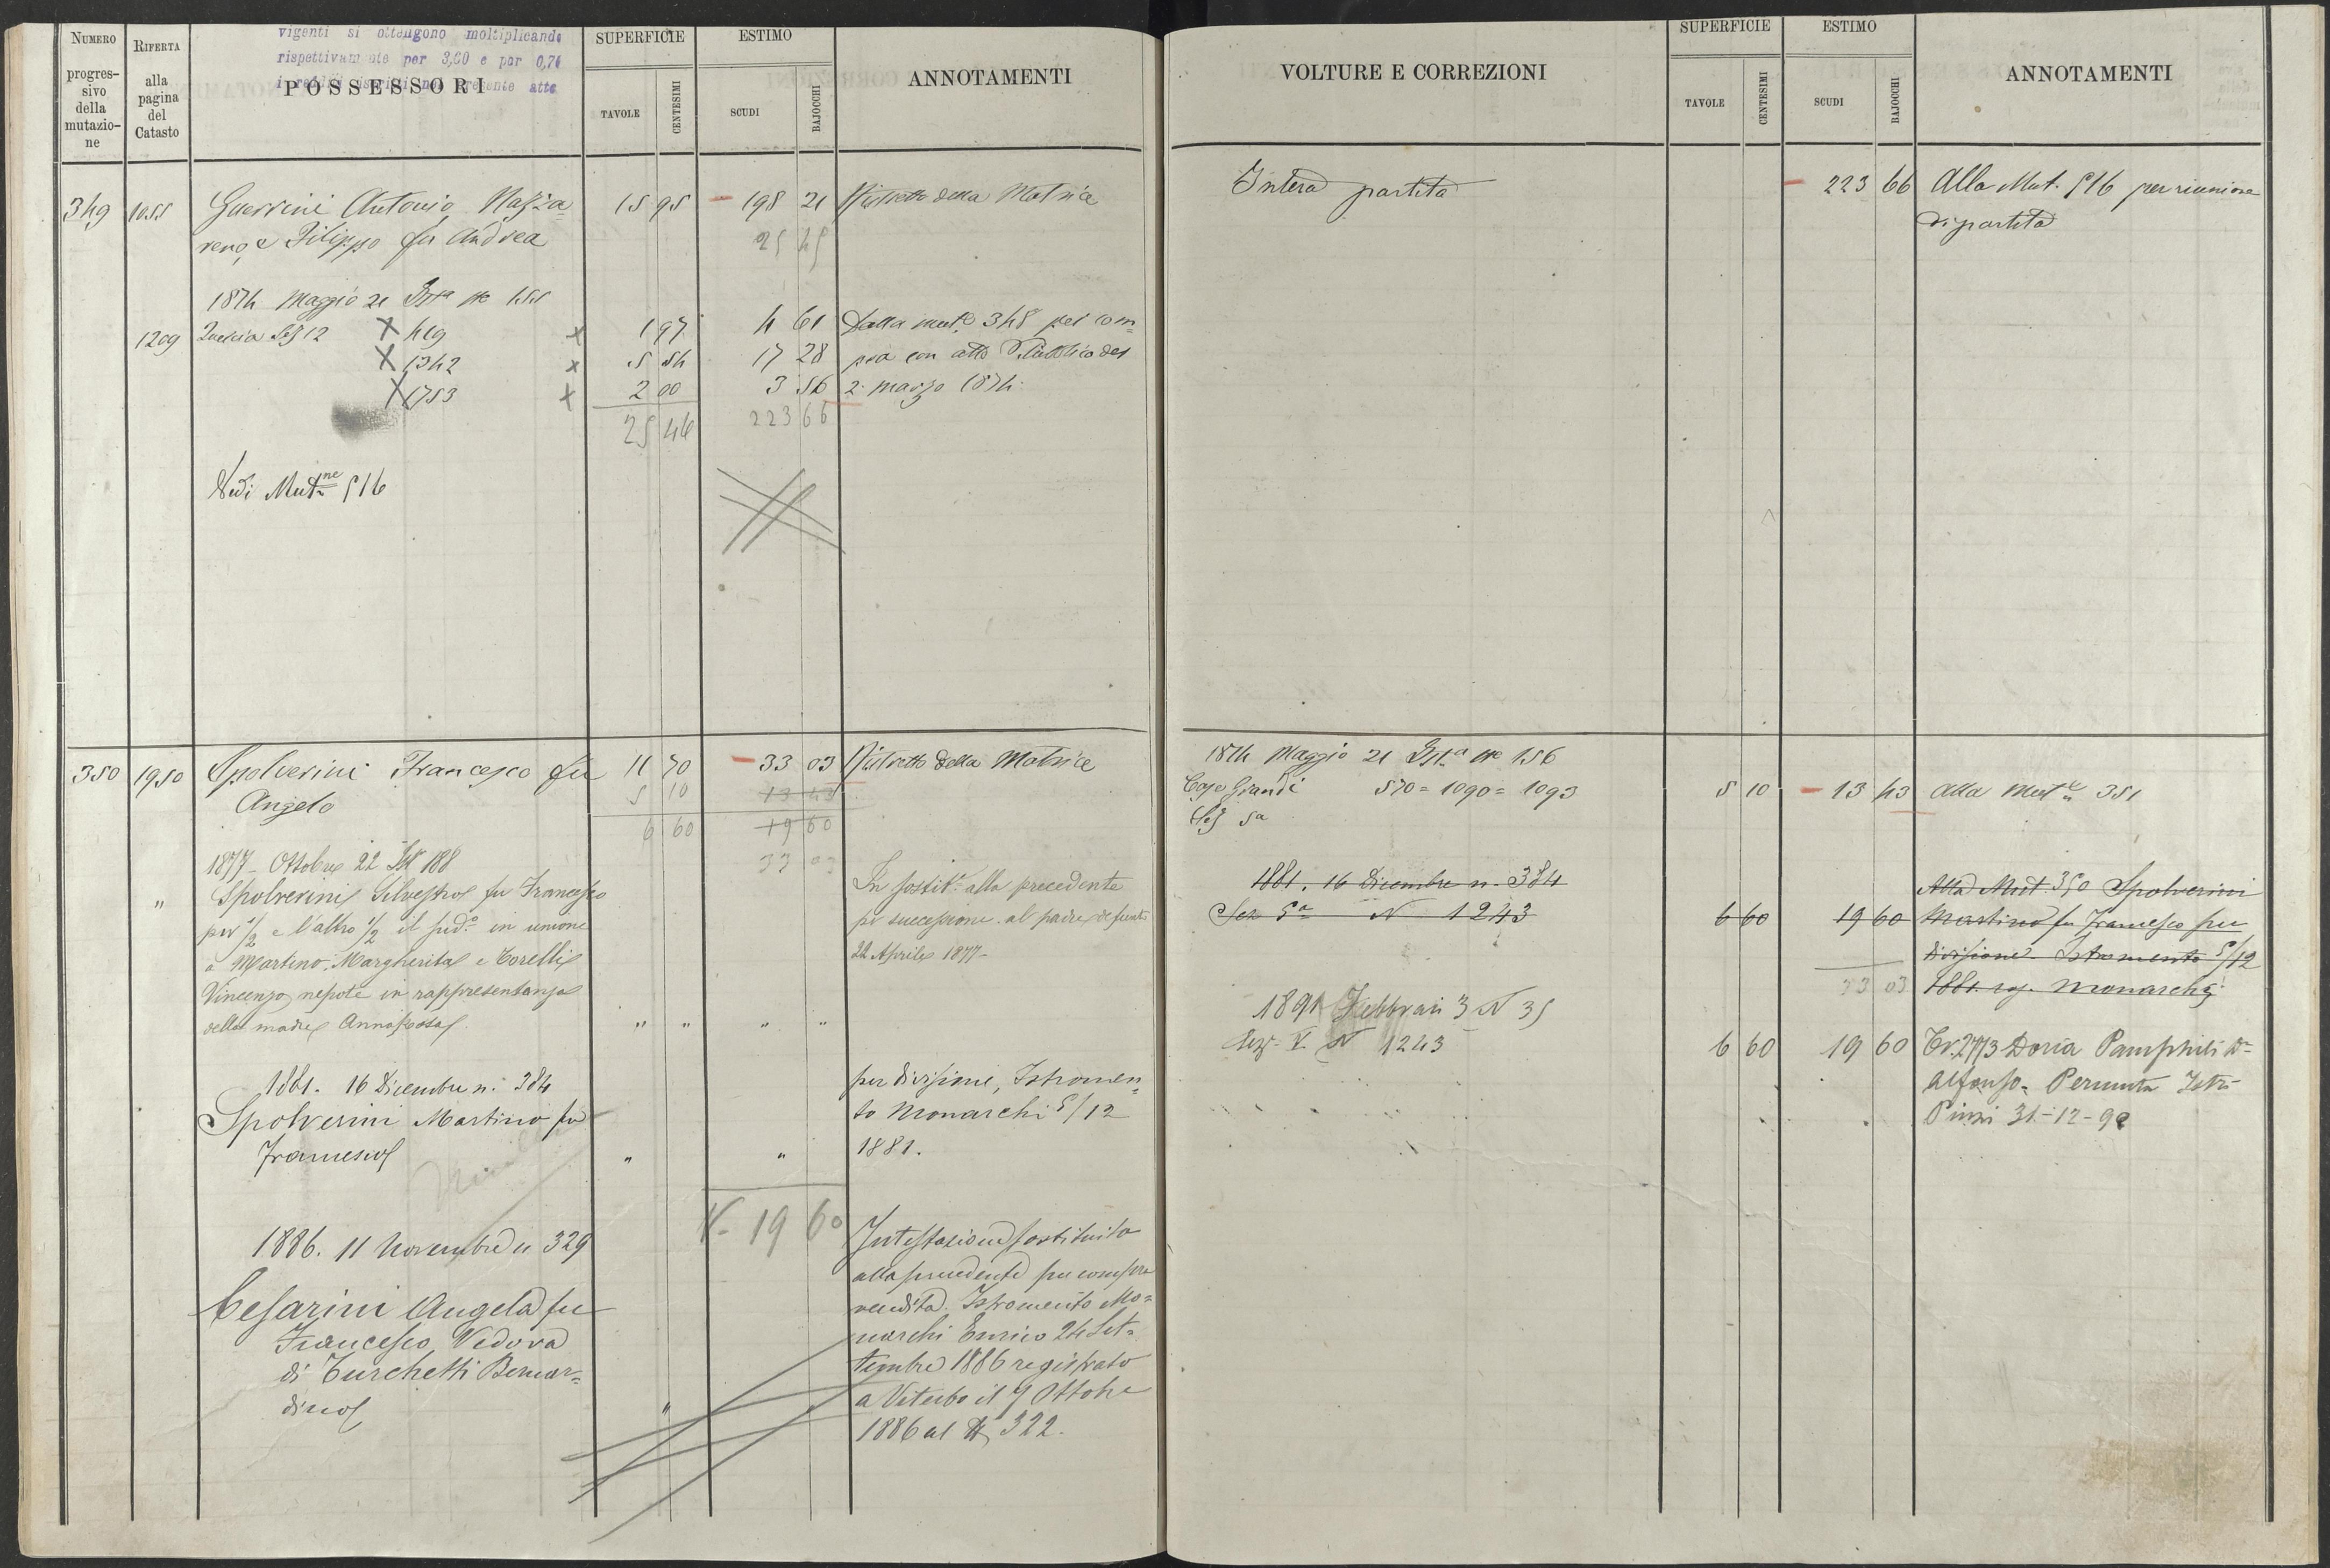 NUMERO progressivo della mutazione
RIFERTA alla pagina del Catasto
vigenti si ottengono moltiplicando
rispettivamente per 3,60 e per 0,76
POSSESSORI
SUPERFICIE
TAVOLE CENTESIMI
ESTIMO
SCUDI BAJOCCHI
ANNOTAMENTI
349 1055 Guerrini Antonio Nazza= 15 95 198 21 Ristretto della Matrice
reno, e Filippo fu Andrea 25 45
1874 Maggio 21 Ist.a No 155
1209 Quercia Sez 12 X 419 x 1 97 4 61 Dalla mut.e 348 per com=
X 1342 x 5 54 17 28 pra con atto Pubblico del
X 1753 x 2 00 3 56 2 marzo 1874
25 46 223 66
Vedi Mut.ne 516
350 1950 Spolverini Francesco fu 11 70 33 03 Ristretto della Matrice
Angelo 5 10 13 43
6 60 19 60
33 03
1877 - Ottobre 22 Ist 188
" Spolverini Silvestro fu Francesco In sostit.e alla precedente
per 1/2 e l'altro 1/2 il sud.o in unione per successione al padre defunto
a Martino, Margherita e Torelli 22 Aprile 1877 -
Vincenzo nepote in rappresentanza
della madre Annarosa " " " "
1881. 16 Dicembre n. 384 per divisione, Istromen=
Spolverini Martino fu to Monarchi 5/12
Francesco " " 1881.
19 60
1886. 11 Novembre n 329 Intestazione sostituita
alla precedente per compra
Cesarini Angela fu vendita. Istromento Mo=
Francesco Vedova narchi Enrico 24 Set=
di Turchetti Bernar= tembre 1886 registrato
dino " a Viterbo il 7 Ottobre
1886 al N 322.
VOLTURE E CORREZIONI
SUPERFICIE
TAVOLE CENTESIMI
ESTIMO
SCUDI BAJOCCHI
ANNOTAMENTI
Intera partita 223 66 Alla Mut. 516 per riunione
di partita
1874 Maggio 21 Ist.a No 156
Capo Grandi 570 = 1090 = 1093 5 10 13 43 alla Mut.e 351
Sez 5a
1881. 16 Dicembre n. 384 Alla Mut. 350 Spolverini
Sez 5a N 1243 6 60 19 60 Martino fu Francesco per
divisione Istromento 5/12
33 03 1881. rog. Monarchi
1891 Febbraio 3 N 35
Sez. V. N 1243 6 60 19 60 Tr. 2773 Doria Pamphili Dn
Alfonso - Permuta Istr.
Pinzi 31-12-90